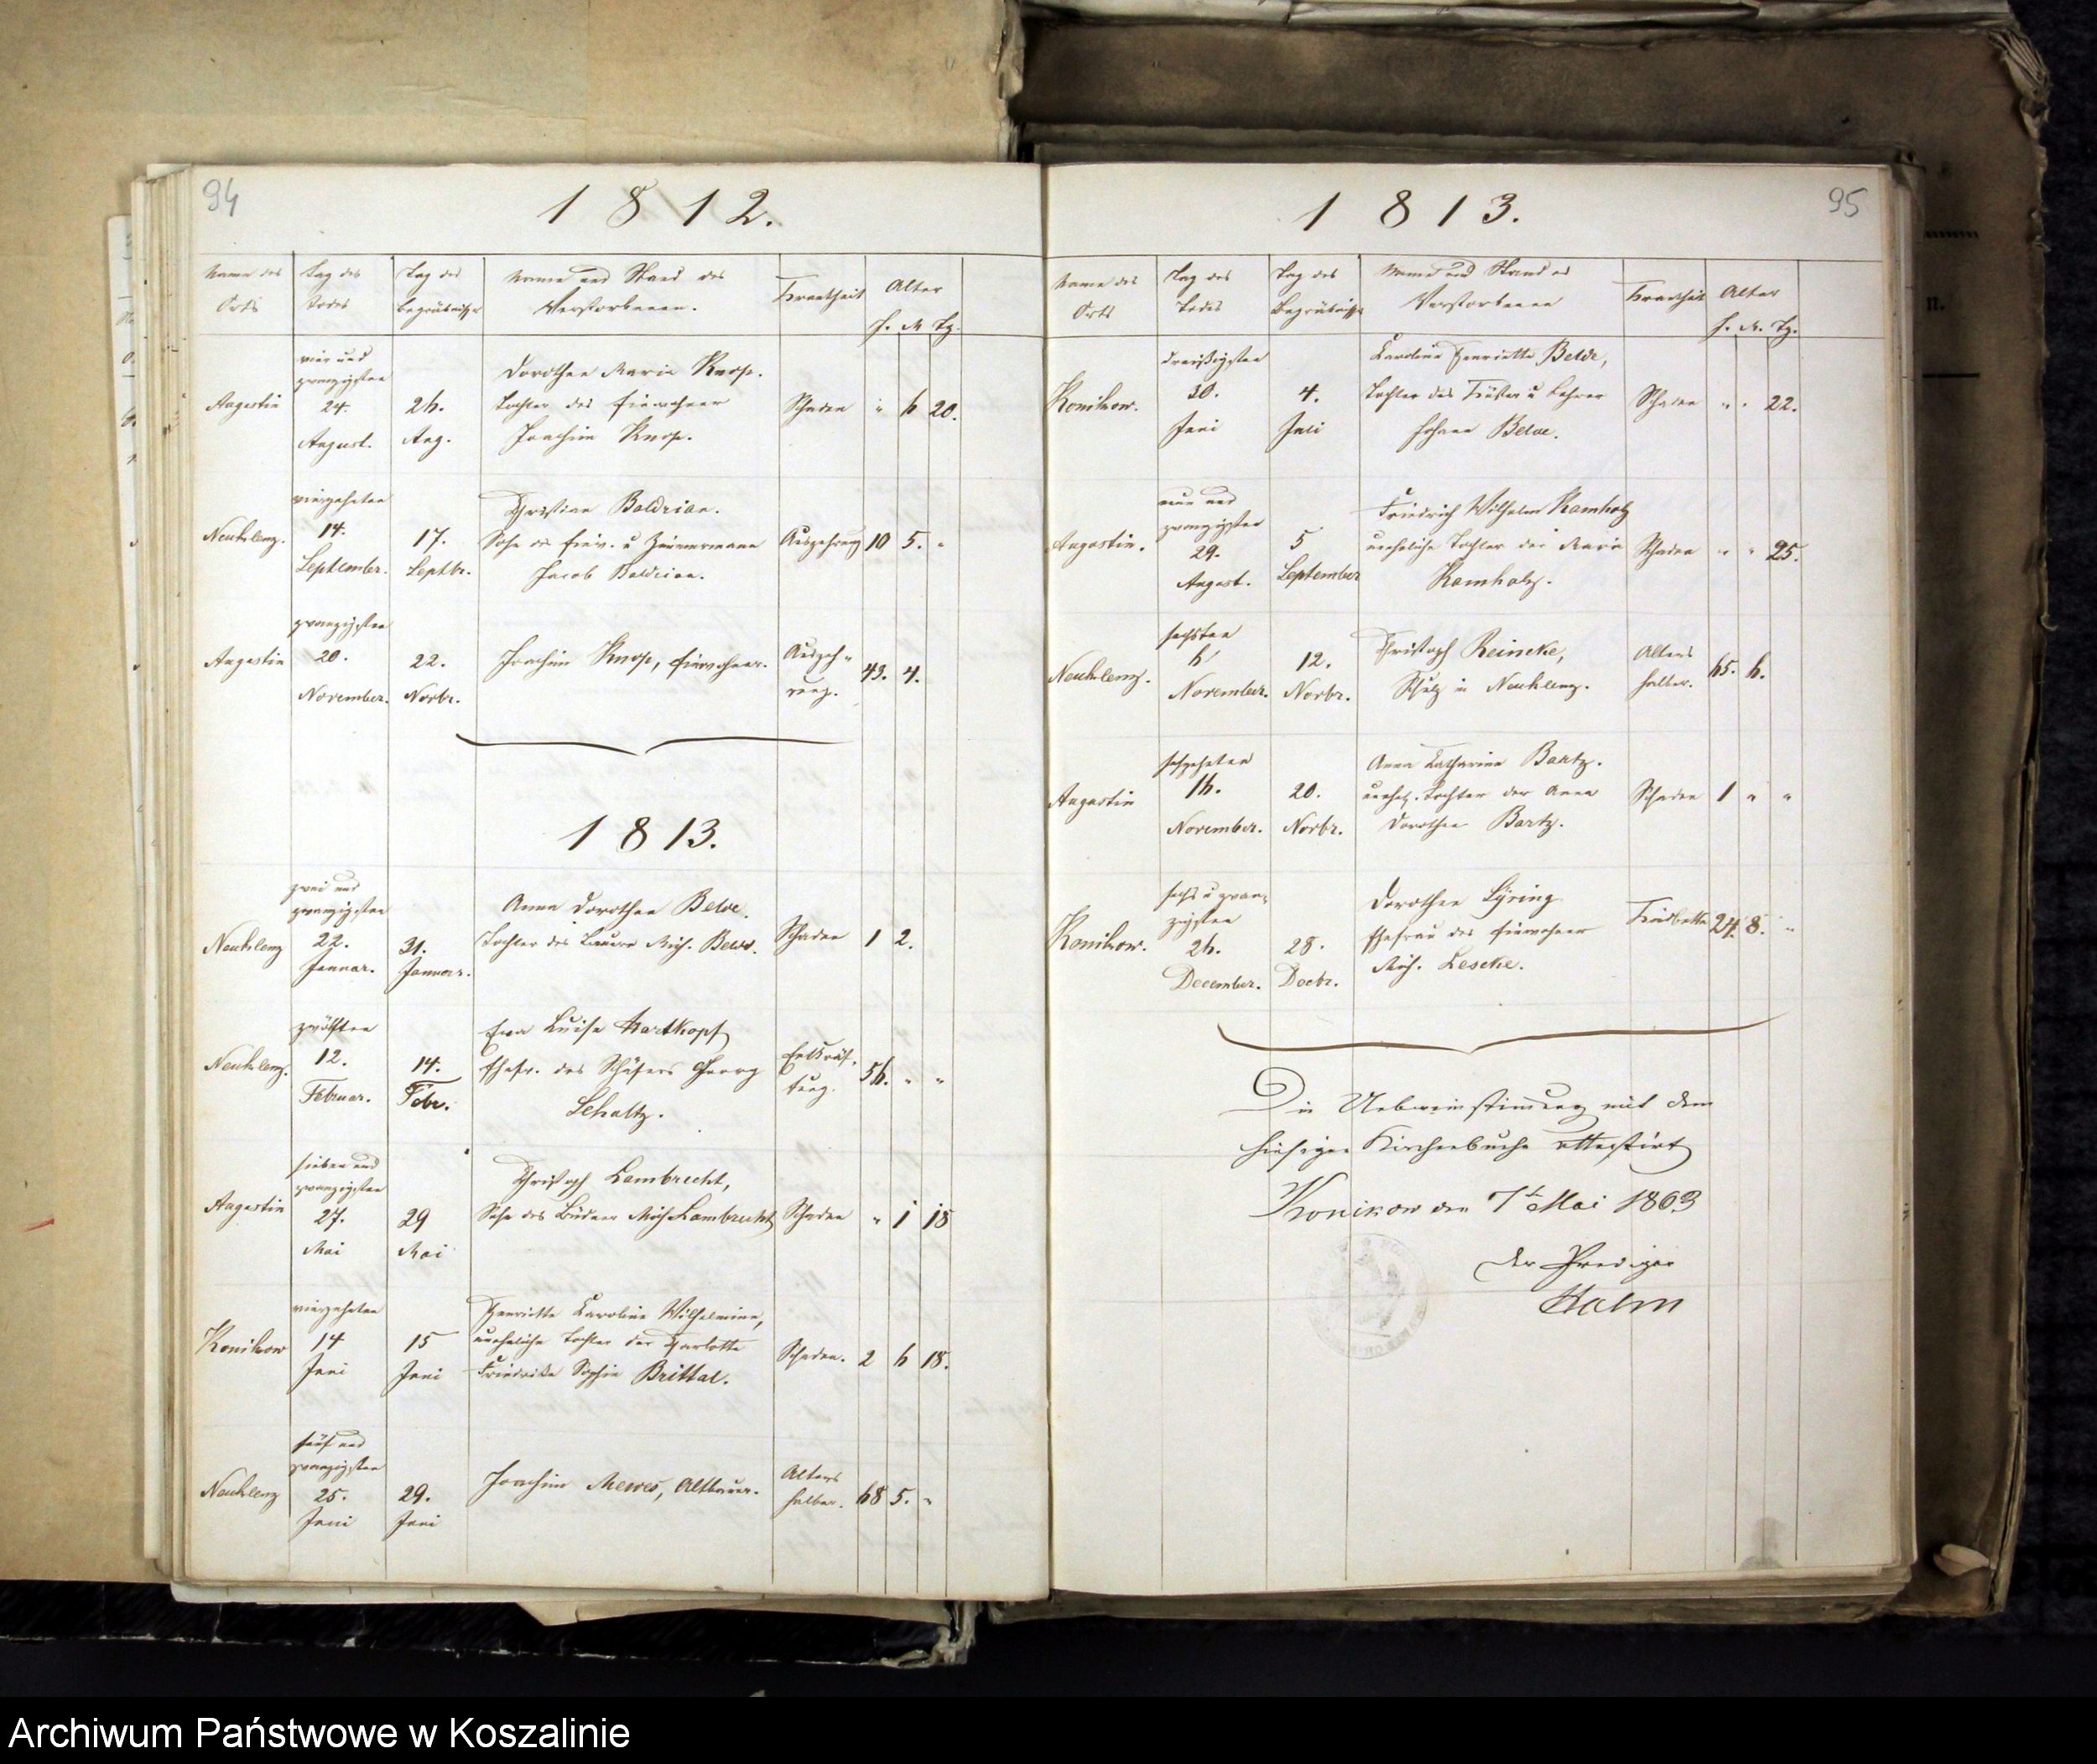 94
1812.
Name des Orts
Tag des Todes
Tag des Begräbnisses
Name und Stand des Verstorbenen.
Krankheit
Alter
J. M. Tg.
Augustin
vier und
zwanzigsten
24.
August.
26.
Aug.
Dorothea Maria Knop.
Tochter des Einwohner
Joachim Knop.
Schaden
" 6 20.
Neuklenz.
vierzehnten
14.
September.
17.
Septbr.
Christian Baldrian.
Sohn des Einw. u Zimmermann
Jacob Baldrian.
Auszehrung
10 5. "
Augustin
zwanzigsten
20.
November.
22.
Novbr.
Joachim Knop, Einwohner.
Auszeh=
rung.
43. 4.
1813.
Neuklenz
zwei und
zwanzigsten
22.
Januar.
31.
Januar.
Anna Dorothea
Tochter des Bauern Mich.
Schaden
1 2.
Neuklenz.
zwölften
12.
Februar.
14.
Febr.
Eva Luise Hartkopf
Ehefr. des Schäfers Georg
Schultz.
Entkräf=
tung.
56. " "
Augustin
sieben und
zwanzigsten
27.
Mai
29
Mai
Christoph Lambrecht,
Sohn des Büdner Mich Lambrecht
Schaden
" 1 18
Konikow
vierzehnten
14
Juni
15
Juni
Henriette Karoline Wilhelmine,
uneheliche Tochter der Charlotte
Friedrike Sophie Brittal.
Schaden.
2 6 18.
Neuklenz
fünf und
zwanzigsten
25.
Juni
29.
Juni
Joachim Mewes, Altbauer.
Alters
halber.
68 5. "
95
1813.
Name des Orts
Tag des Todes
Tag des Begräbnisses
Name und Stand des Verstorbenen
Krankheit
Alter
J. M. Tg.
Konikow.
dreißigsten
30.
Juni
4.
Juli
Karoline Henriette
Tochter des Küster u Lehrer
Johann
Schaden
" " 22.
Augustin.
neun und
zwanzigsten
29.
August.
5
September
Friedrich Wilhelm Ramholz
uneheliche Tochter der Maria
Ramholz.
Schaden
" " 25.
Neuklenz.
sechsten
6
November.
12.
Novbr.
Christoph Reincke,
Schulz in Neuklenz.
Alters
halber.
65. 6.
Augustin
sechzehnten
16.
November.
20.
Novbr.
Anna Katharina Bartz.
unehel. Tochter der Anna
Dorothea Bartz.
Schaden
1 " "
Konikow.
sechs u zwan=
zigsten
26.
December.
28.
Decbr.
Dorothea
Ehefrau des Einwohner
Mich. Lescke.
Kindbette
24. 8. "
Die Uebereinstimung mit dem
hiesigen Kirchenbuche attestirt
Konikow den 7t Mai 1863
Der Prediger
Halm
Archiwum Państwowe w Koszalinie